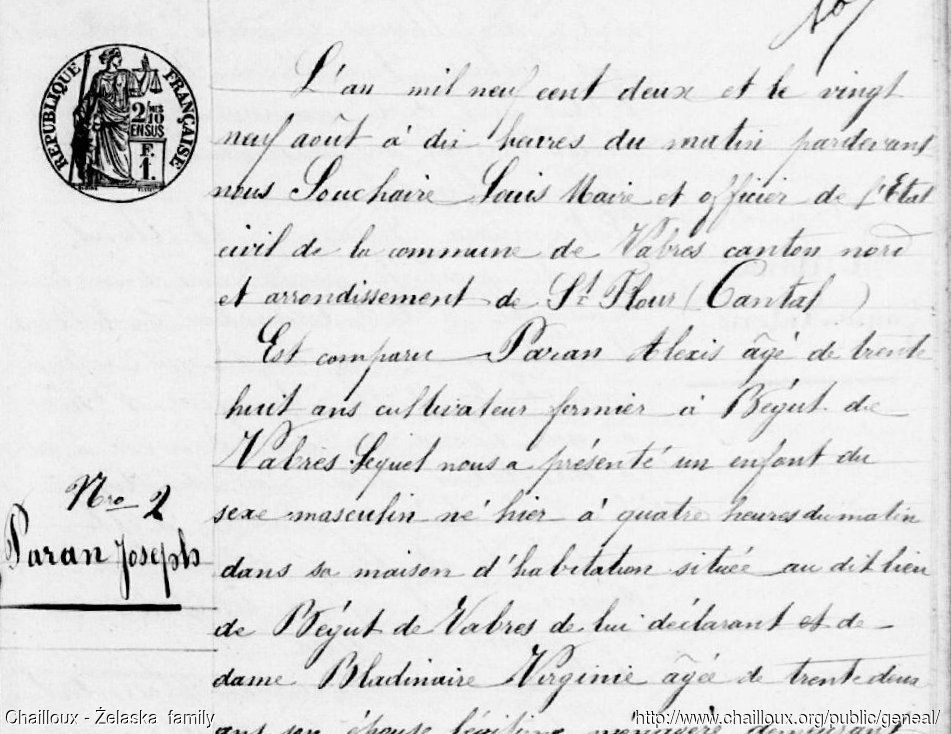 RÉPUBLIQUE FRANÇAISE
2/10 EN SUS
F.
1.
L'an mil neuf cent deux et le vingt
neuf août à dix heures du matin pardevant
nous Souchaire Louis Maire et officier de l'Etat
civil de la commune de Vabres canton nord
et arrondissement de St Flour (Cantal)
Est comparu Paran Alexis âgé de trente
huit ans cultivateur fermier à Bégut de
Vabres. Lequel nous a présenté un enfant du
Nro 2
sexe masculin né hier à quatre heures du matin
Paran Joseph
dans sa maison d'habitation située au dit lieu
de Bégut de Vabres de lui déclarant et de
dame Bladinaire Virginie âgée de trente deux
ans son épouse légitime ménagère demeurant
Chailloux - Żelaska family
http://www.chailloux.org/public/geneal/